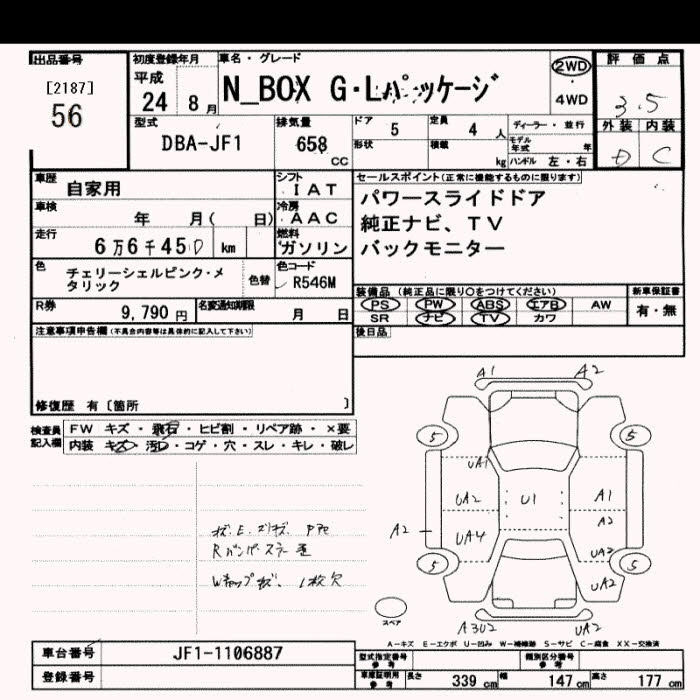 出品番号
[2187]
56
初度登録年月
平成
24 8月
車名・グレード
N_BOX G・Lパッケージ
2WD
4WD
評価点
3.5
外装 内装
D C
型式
DBA-JF1
排気量
658 CC
ドア 5
形状
定員 4 人
積載 kg
ディーラー・並行
モデル年式 年
ハンドル 左・右
車歴 自家用
車検 年 月( 日)
走行 6万6千450 km
シフト
IAT
冷房
AAC
燃料
ガソリン
セールスポイント(正常に機能するものに限ります)
パワースライドドア
純正ナビ、TV
バックモニター
色 チェリーシェルピンク・メタリック
色替
色コード
R546M
R券 9,790円
名変通知期限 月 日
装備品(純正品に限り○をつけてください)
PS PW ABS エアB AW
SR ナビ TV カワ
新車保証書
有・無
後日品
注意事項申告欄(不具合内容等は具体的に記入して下さい)
修復歴 有〔箇所 〕
検査員記入欄
FW キズ・飛石・ヒビ割・リペア跡・×要
内装 キズ・汚レ・コゲ・穴・スレ・キレ・破レ
A1 A2
5 5
UA1
UA2 U1 A1
A2
A2 UA4
UA2
5 5
UA2
A3U2 UA2
スペア
Rバンパー
1枚欠
A-キズ E-エクボ U-凹み W-補修跡 S-サビ C-腐食 XX-交換済
車台番号 JF1-1106887
登録番号
型式指定番号 参考
類別区分番号 参考
車庫証明用 参考
長さ 339 cm 幅 147 cm 高さ 177 cm